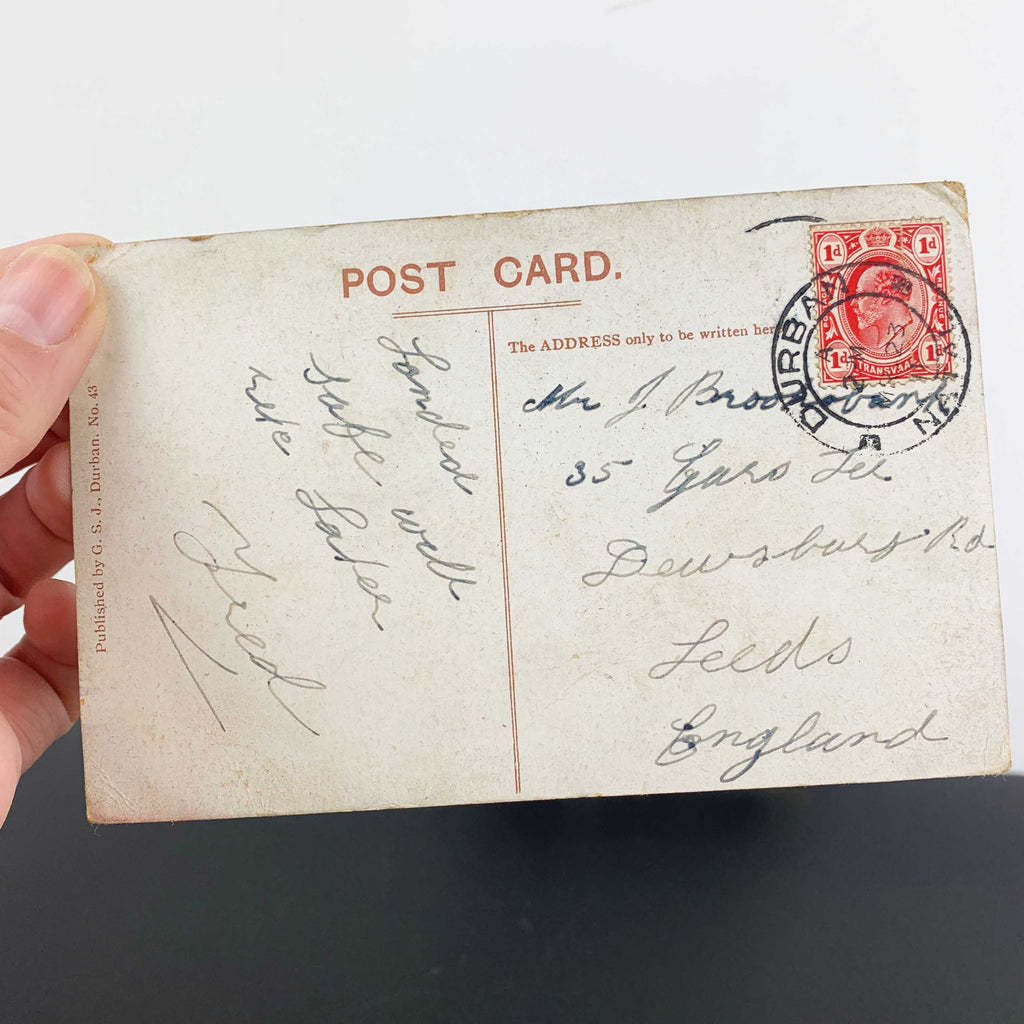 POST CARD.
The ADDRESS only to be written here
1d 1d
1d 1d
TRANSVAAL
DURBAN
23
Landed
safe well
Later
Fred
Mr J. Brooksbank
35 Garo Lee
Dewsbury Rd
Leeds
England
Published by G. S. J., Durban. No. 43